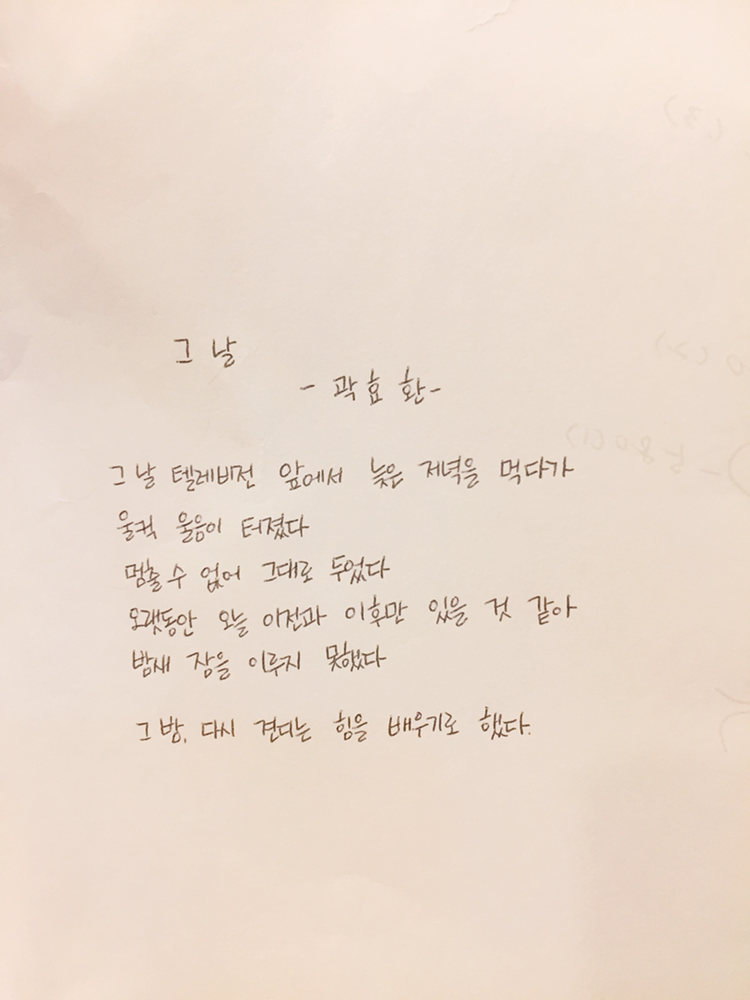 그 날
- 곽효환-
그날 텔레비전 앞에서 늦은 저녁을 먹다가
울컥 울음이 터졌다
멈출 수 없어 그대로 두었다
오랫동안 오늘 이전과 이후만 있을 것 같아
밤새 잠을 이루지 못했다
그 밤, 다시 견디는 힘을 배우기로 했다.